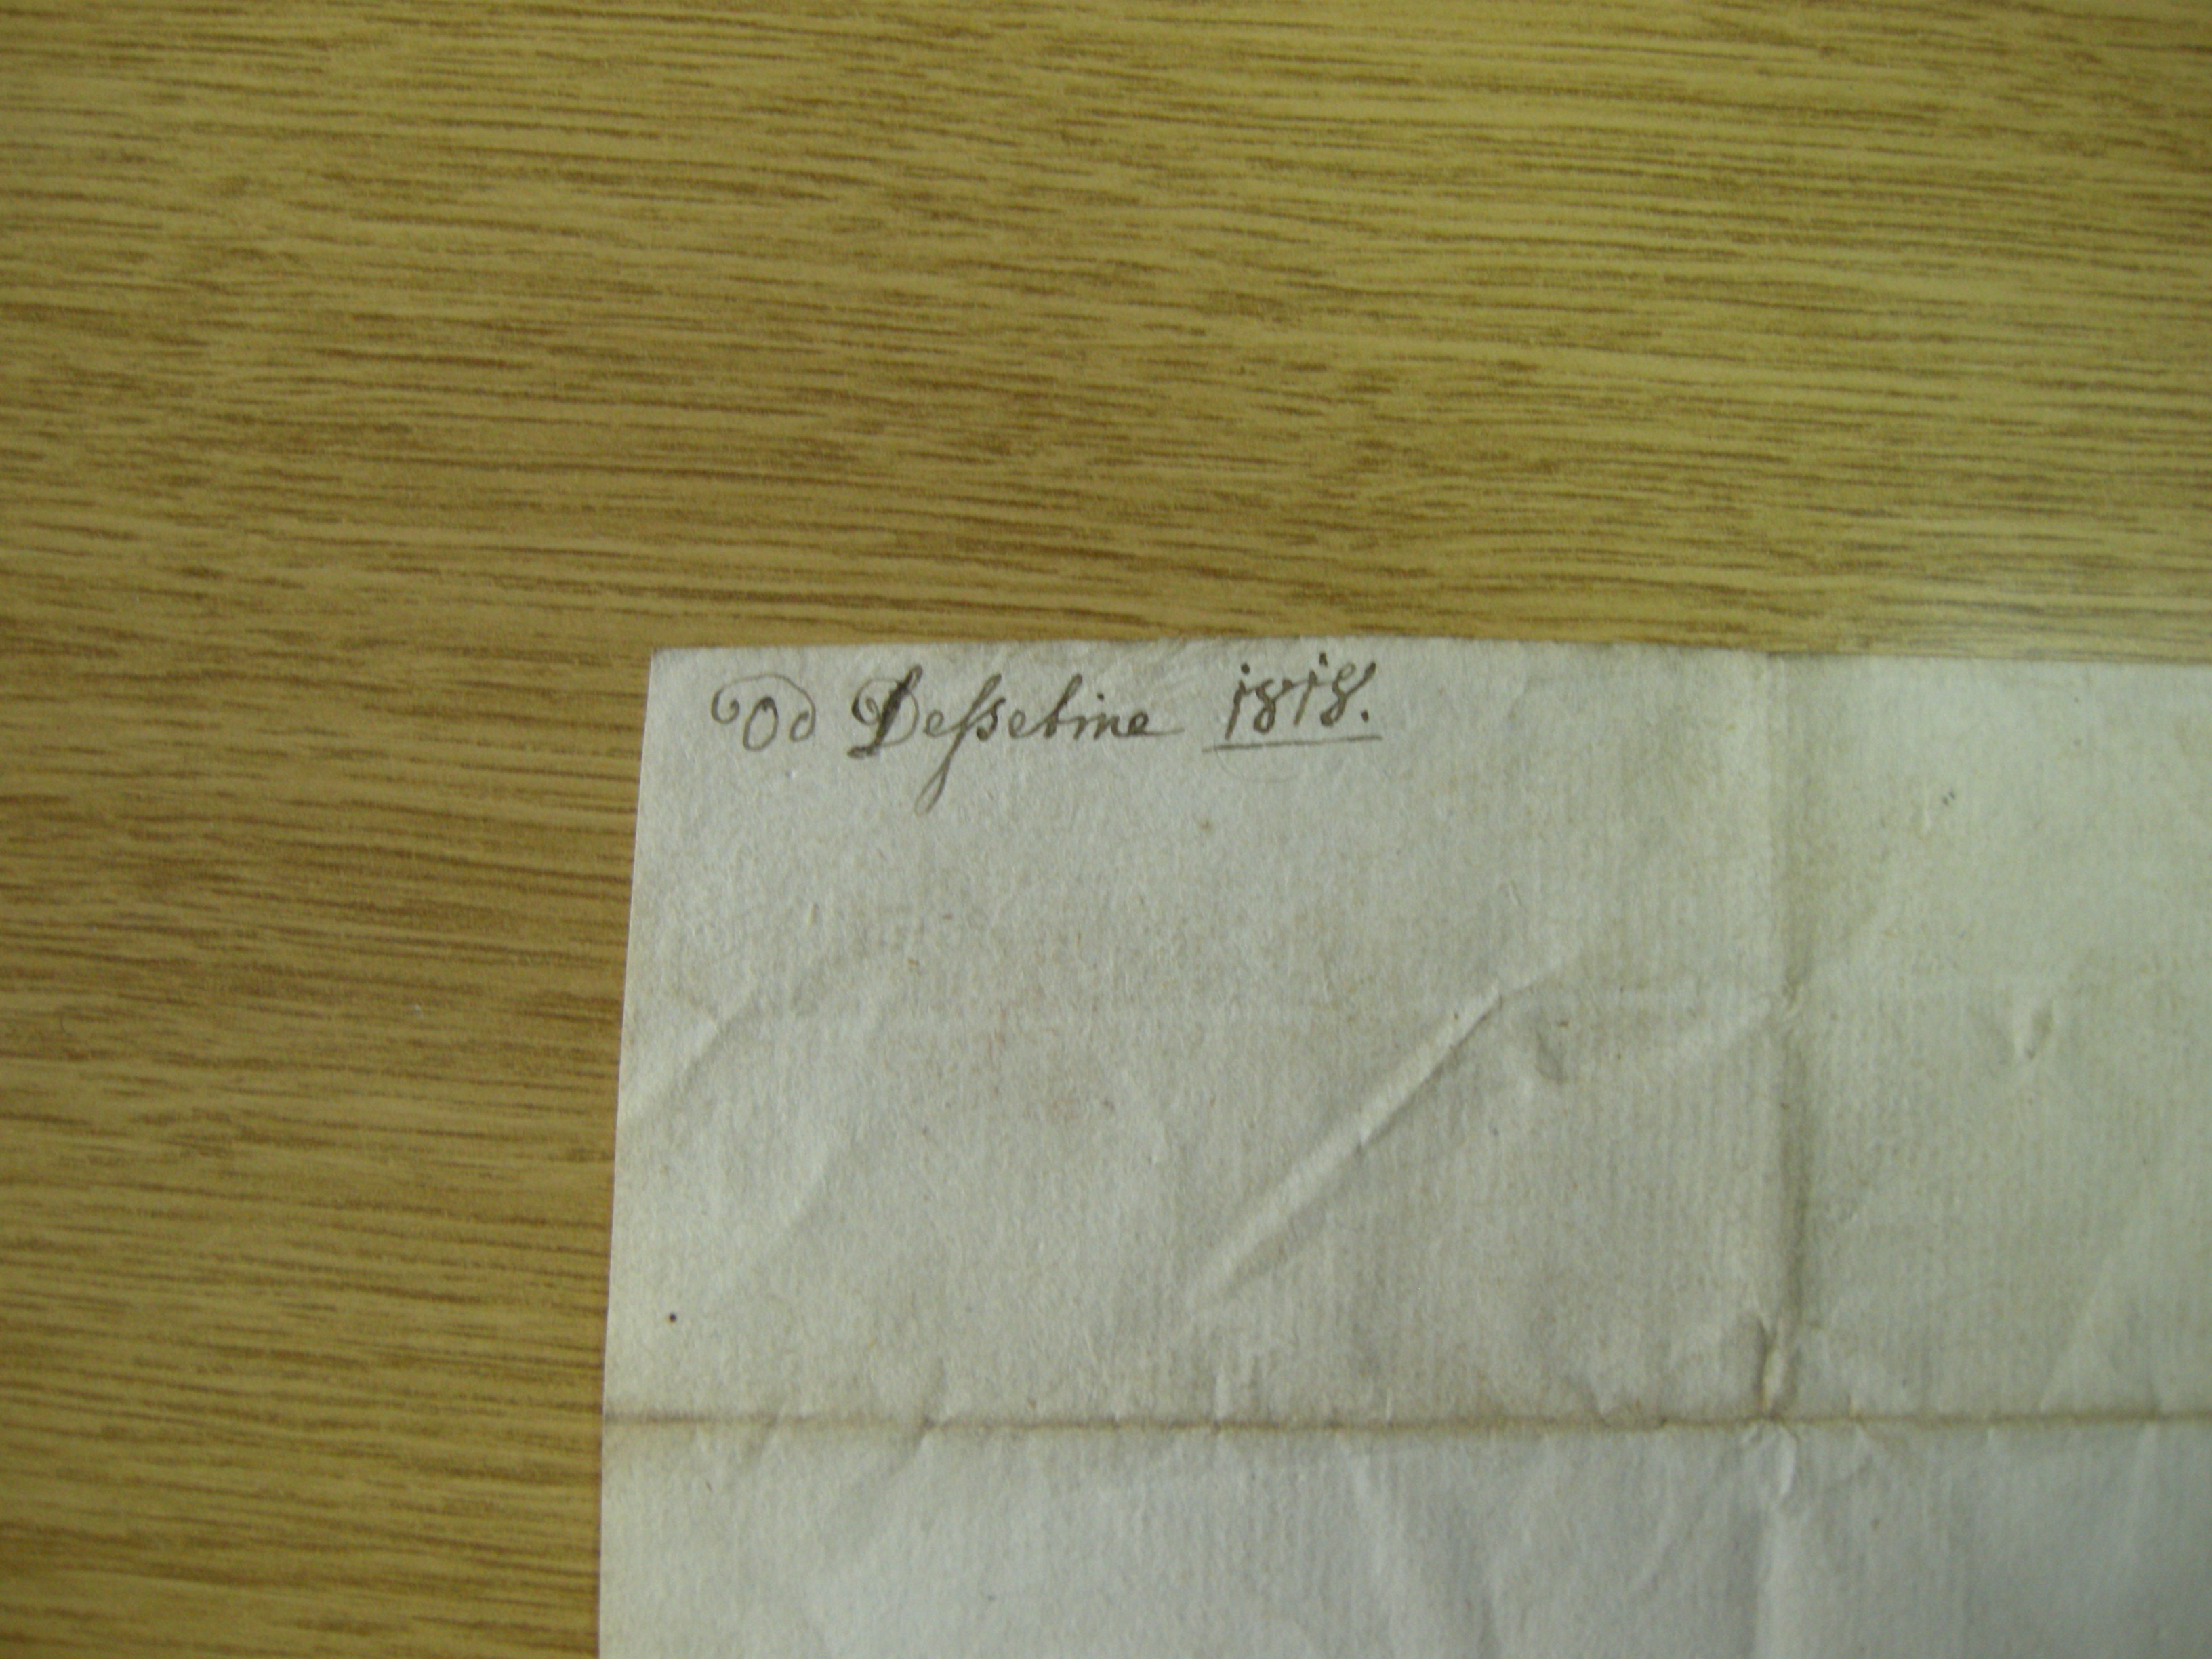 Od Deſsetine 1818.